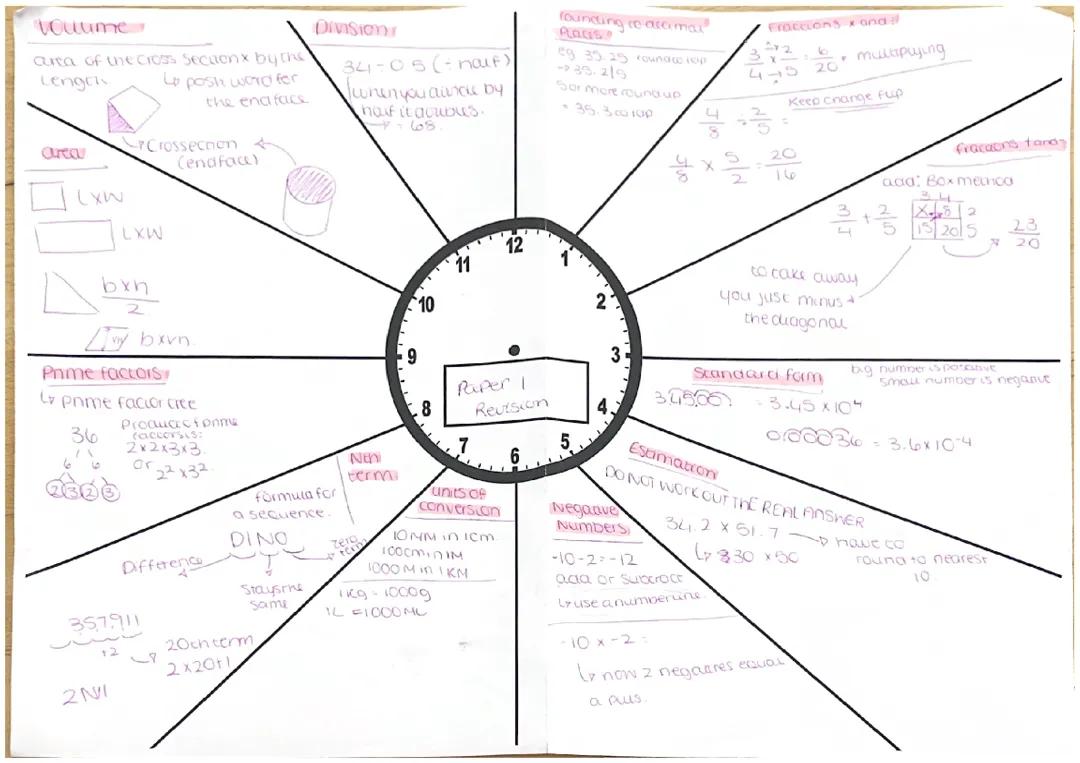 Volume
area of the cross section x by the
length.
↳ posh word for
the endface
↳ Crossection
(endface)
Division
34 ÷ 0.5 (÷ half)
when you divide by
half it doubles.
→ = 68.
rounding to decimal
places
eg 35.25 round to 1dp
→ 35.2|5
5 or more round up
= 35.3 to 1dp
Fractions x and ÷
3/4 x 2/5 = 6/20 • multiplying
Keep change flip
4/8 ÷ 2/5 =
4/8 x 5/2 = 20/16
fractions + and -
add: Box method
3 4
3/4 + 2/5
X 8 2
15 20 5
23/20
to take away
you just minus
the diagonal
area
L x W
L x W
b x h
2
b x vh
12
1
2
3
4
5
6
7
8
9
10
11
Paper 1
Revision
Standard form
big number is positive
small number is negative
34500. = 3.45 x 10^4
0.00036 = 3.6 x 10^-4
Estimation
DO NOT WORK OUT THE REAL ANSWER
34.2 x 51.7 → have to
round to nearest
10.
↳ 30 x 50
Negative
Numbers
-10 - 2 = -12
add or subtract
↳ use a number line
-10 x -2 =
↳ now 2 negatives equal
a plus.
units of
conversion
10 MM in 1cm
100cm in 1M
1000 M in 1KM
1Kg = 1000g
1L = 1000ML
Nth
term
formula for
a sequence.
DINO
Difference
Stays the
same
zero
term
3 5 7 9 11
+2
20th term
2 x 20 + 1
2N+1
Prime factors
↳ prime factor tree
36
6 6
2 3 2 3
Product of prime
factors is:
2 x 2 x 3 x 3.
or 2² x 3².